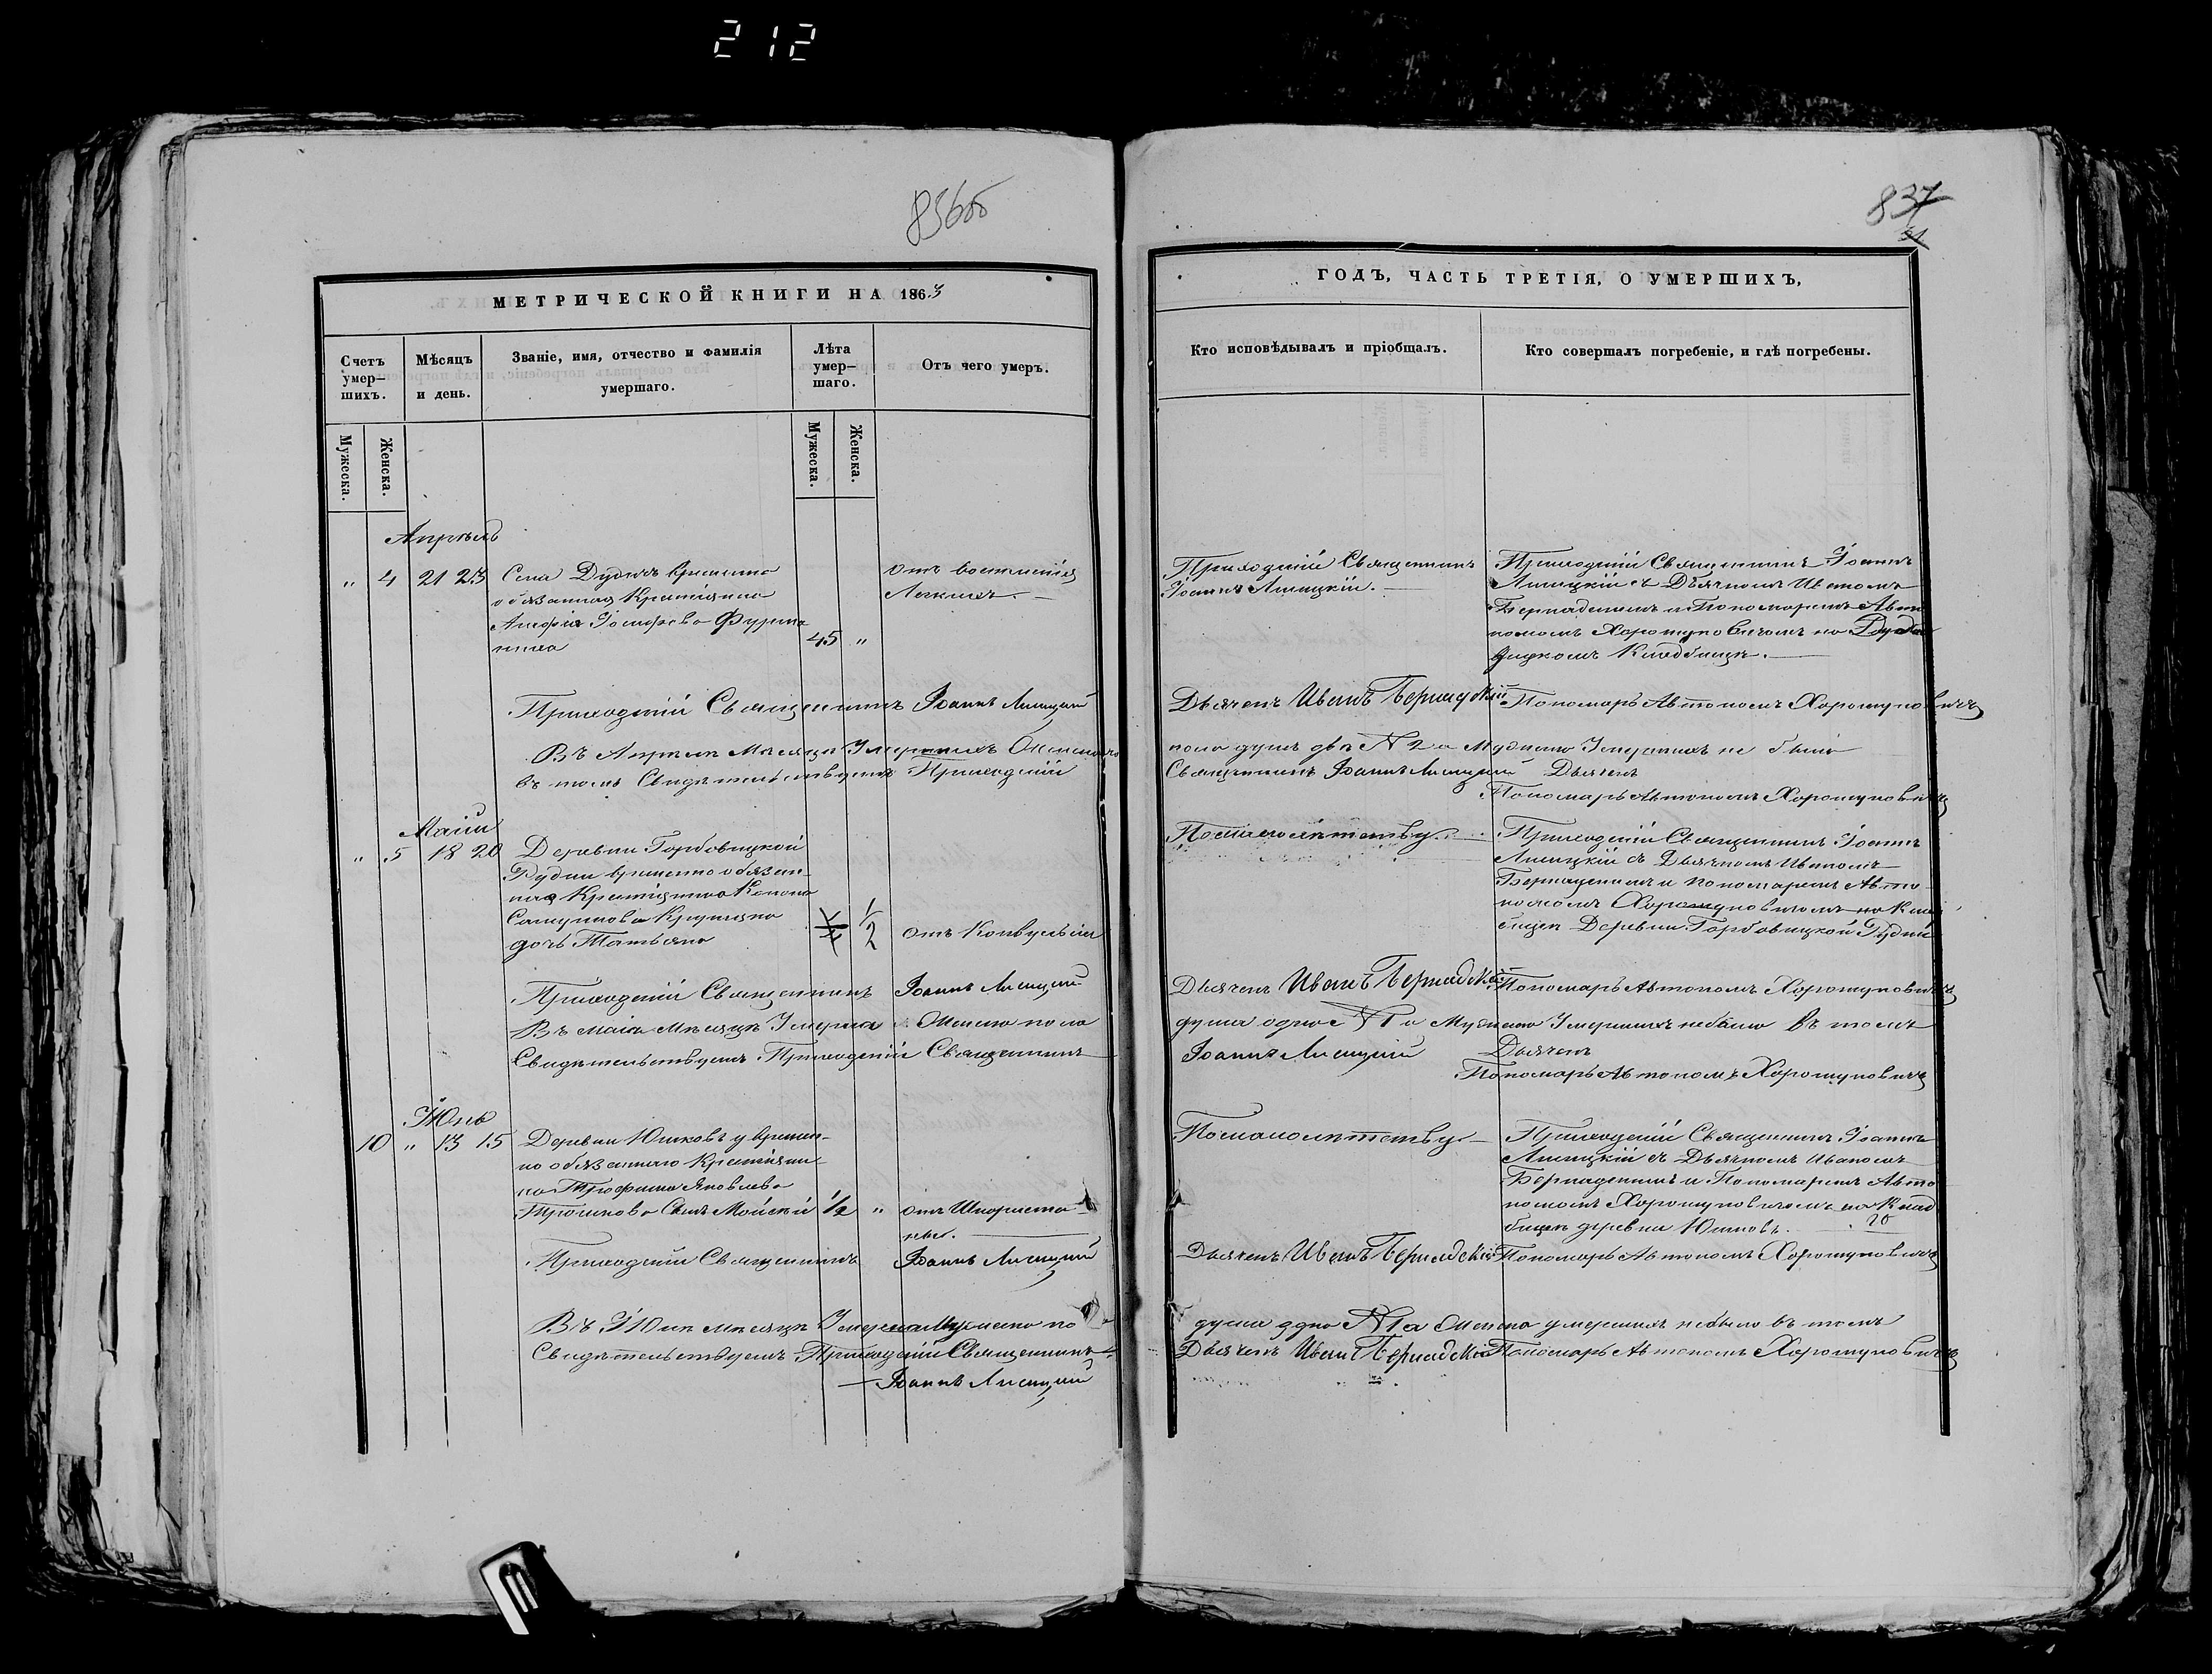 212
836об
837
МЕТРИЧЕСКОЙ КНИГИ НА 1863
Счетъ умер-шихъ.
Мѣсяцъ и день.
Званіе, имя, отчество и фамилія умершаго.
Лѣта умер-шаго.
Отъ чего умеръ.
Мужеска.
Женска.
Мужеска.
Женска.
Апрѣль
" 4 21 23
Села временно
обязанная Крестьянка
Іосифова
45 "
отъ воспаленія
Легкихъ.
Приходскій Священникъ Іоаннъ Лисицкій
Въ Апрѣлѣ Мѣсяцѣ Умершихъ Женскаго
въ томъ Свидѣтельствуемъ Приходскій
Маій
" 5 18 20
Деревни Горбовицкой
Рудни временно обязан-
ная Крестьянина
дочь Татьяна
1/2
отъ Конвульсіи
Приходскій Священникъ Іоаннъ Лисицкій
Въ маіѣ мѣсяцѣ Умерла Женска пола
Свидѣтельствуемъ Приходскій Священникъ
Іюнь
10 " 13 15
Деревни Юшковъ у времен-
но обязаннаго Крестьяни-
на Трофима Яковлева
Трошкова Сынъ Мойсей 1/2 "
Приходскій Священникъ Іоаннъ Лисицкій
Въ Іюнѣ мѣсяцѣ Умерла Мужеска по
Свидѣтельствуемъ Приходскій Священникъ
Іоаннъ Лисицкій
ГОДЪ, ЧАСТЬ ТРЕТІЯ, О УМЕРШИХЪ,
Кто исповѣдывалъ и пріобщалъ.
Кто совершалъ погребеніе, и гдѣ погребены.
Приходскій Священникъ
Іоаннъ Лисицкій.
Приходскій Священникъ Іоаннъ
Лисицкій съ Дьячкомъ Иваномъ
Бернадскимъ и Пономаремъ Авто
номомъ Хорошуновичемъ на
Кладбищѣ.
Дьячекъ Иванъ Бернадскій Пономарь Автономъ Хорошуновичъ
пола душъ двѣ N 2 а Мужеска Умершихъ не было
Священникъ Іоаннъ Лисицкій Дьячекъ
Пономарь Автономъ Хорошуновичъ
По малолѣтству.
Приходскій Священникъ Іоаннъ
Лисицкій съ Дьячкомъ Иваномъ
Бернадскимъ и пономаремъ Авто
номомъ Хорошуновичемъ на Клад
бищѣ Деревни Горбовицкой Рудни
Дьячекъ Иванъ Бернадскій Пономарь Автономъ Хорошуновичъ
душа одна N 1 а Мужеска Умершихъ небыло въ томъ
Іоаннъ Лисицкій Дьячекъ
Пономарь Автономъ Хорошуновичъ
По малолѣтству
Приходскій Священникъ Іоаннъ
Лисицкій съ Дьячкомъ Иваномъ
Бернадскимъ и Пономаремъ Авто
номомъ Хорошуновичемъ на Клад
бищѣ деревни Юшковъ.
Дьячекъ Иванъ Бернадскій Пономарь Автономъ Хорошуновичъ
душа одна N 1 а Женска умершихъ небыло въ томъ
Дьячекъ Иванъ Бернадскій Пономарь Автономъ Хорошуновичъ